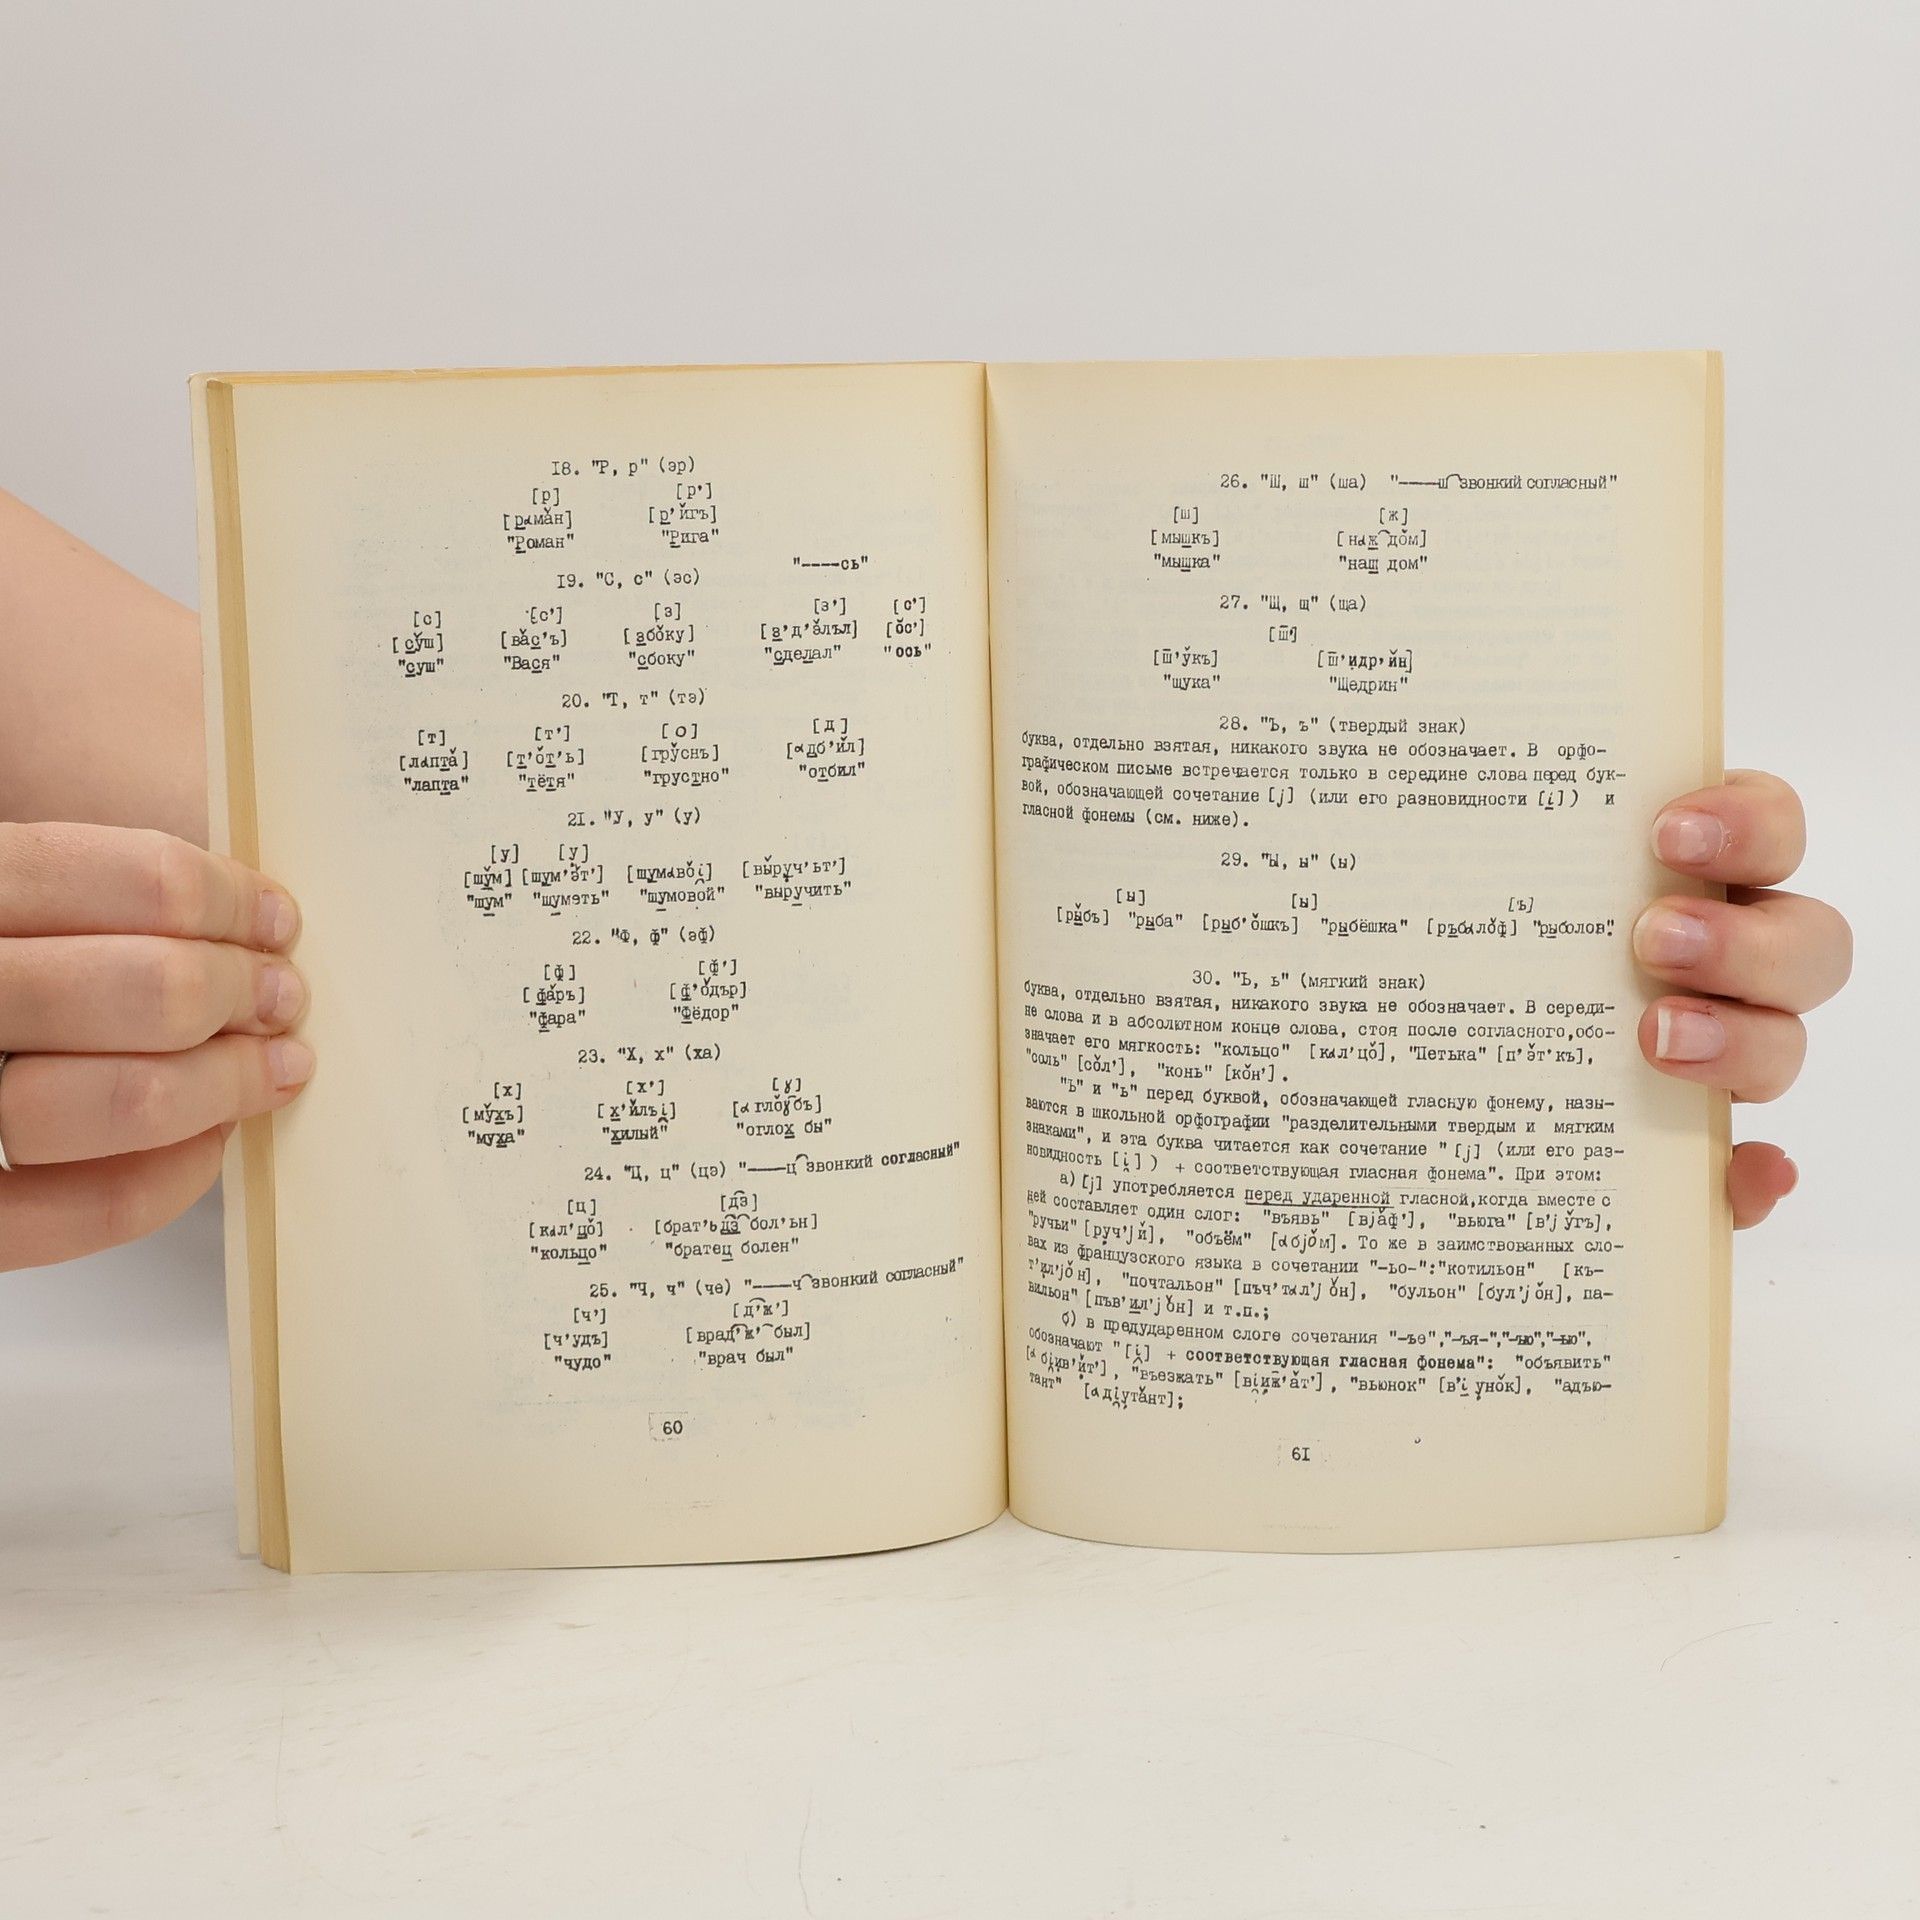 18. "Р, р" (эр)
[р] [р']
[рαма̌н] [р'и̌гъ]
"Роман" "Рига"
19. "С, с" (эс) "----сь"
[с] [с'] [з] [з'] [с']
[су̌ш] [ва̌с'ъ] [збо̌ку] [з'д'а̌лъл] [о̌с']
"суш" "Вася" "сбоку" "сделал" "ось"
20. "Т, т" (тэ)
[т] [т'] [О] [д]
[лαпта̌] [т'о̌т'ь] [гру̌снъ] [αдб'и̌л]
"лапта" "тётя" "грустно" "отбил"
21. "У, у" (у)
[у] [у̣]
[шу̌м] [шум'э̌т'] [шумαво̌i̯] [вы̌руч'ьт']
"шум" "шуметь" "шумовой" "выручить"
22. "Ф, ф" (эф)
[ф] [ф']
[фа̌ръ] [ф'о̌дър]
"фара" "Фёдор"
23. "Х, х" (ха)
[х] [х'] [ɣ]
[му̌хъ] [х'и̌лъi̯] [αгло̌ɣ͡бъ]
"муха" "хилый" "оглох бы"
24. "Ц, ц" (цэ) "——ц͡звонкий согласный"
[ц] [д͡з]
[кαл'цо̌] [брат'ьд͡з͡бол'ьн]
"кольцо" "братец болен"
25. "Ч, ч" (че) "——ч͡звонкий согласный"
[ч'] [д͡'ж']
[ч'удъ] [врад͡'ж'͡был]
"чудо" "врач был"
60
26. "Ш, ш" (ша) "——ш͡звонкий согласный"
[ш] [ж]
[мышкъ] [нαж͡до̌м]
"мышка" "наш дом"
27. "Щ, щ" (ща)
[ш̄']
[ш̄'у̌къ] [ш̄'идр'и̌н]
"щука" "Щедрин"
28. "Ъ, ъ" (твердый знак)
буква, отдельно взятая, никакого звука не обозначает. В орфо-
графическом письме встречается только в середине слова перед бук-
вой, обозначающей сочетание [j] (или его разновидности [i̯]) и
гласной фонемы (см. ниже).
29. "Ы, ы" (ы)
[ы] [ы] [ъ]
[ры̌бъ] "рыба" [рыб'о̌шкъ] "рыбёшка" [ръбαло̌ф] "рыболов".
30. "Ь, ь" (мягкий знак)
буква, отдельно взятая, никакого звука не обозначает. В середи-
не слова и в абсолютном конце слова, стоя после согласного, обо-
значает его мягкость: "кольцо" [кαл'цо̌], "Петька" [п'э̌т'къ],
"соль" [со̌л'], "конь" [ко̌н'].
"Ъ" и "ь" перед буквой, обозначающей гласную фонему, назы-
ваются в школьной орфографии "разделительными твердым и мягким
знаками", и эта буква читается как сочетание "[j] (или его раз-
новидность [i̯]) + соответствующая гласная фонема". При этом:
а) [j] употребляется перед ударенной гласной, когда вместе с
ней составляет один слог: "въявь" [вjа̌ф'], "вьюга" [в'jу̌гъ],
"ручьи" [руч'jи̌], "объём" [αбjо̌м]. То же в заимствованных сло-
вах из французского языка в сочетании "-ьо-": "котильон" [къ-
т'ил'jо̌н], "почтальон" [пъч'тαл'jо̌н], "бульон" [бул'jо̌н], па-
вильон" [пъв'ил'jо̌н] и т.п.;
б) в предударенном слоге сочетания "-ъе", "-ъя-", "-ъю", "-ью",
обозначают "[i̯] + соответствующая гласная фонема": "объявить"
[αбi̯ив'и̌т'], "въезжать" [вi̯иж̄'а̌т'], "вьюнок" [в'i̯уно̌к], "адъю-
тант" [αдi̯ута̌нт];
61